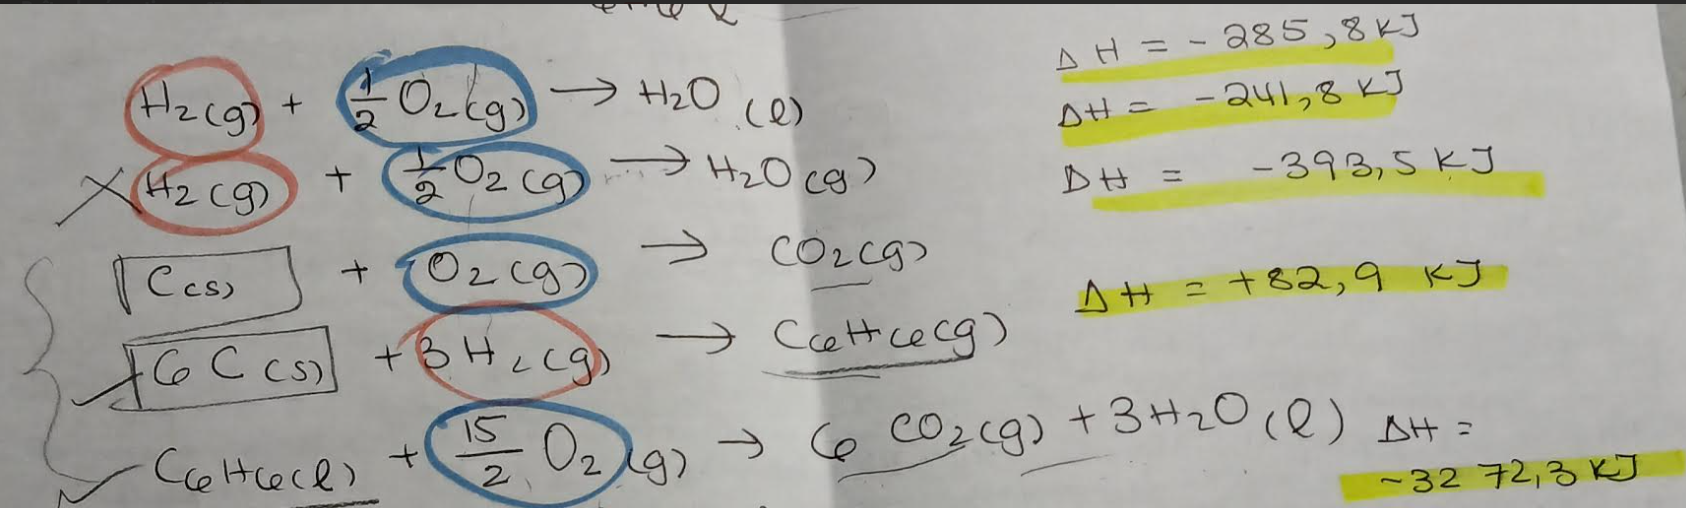 H2(g) + 1/2 O2(g) → H2O (l) ΔH = -285,8 KJ
H2(g) + 1/2 O2(g) → H2O(g) ΔH = -241,8 KJ
C(s) + O2(g) → CO2(g) ΔH = -393,5 KJ
6 C(s) + 3 H2(g) → C6H6(g) ΔH = +82,9 KJ
C6H6(l) + 15/2 O2(g) → 6 CO2(g) + 3H2O(l) ΔH =
-3272,3 KJ